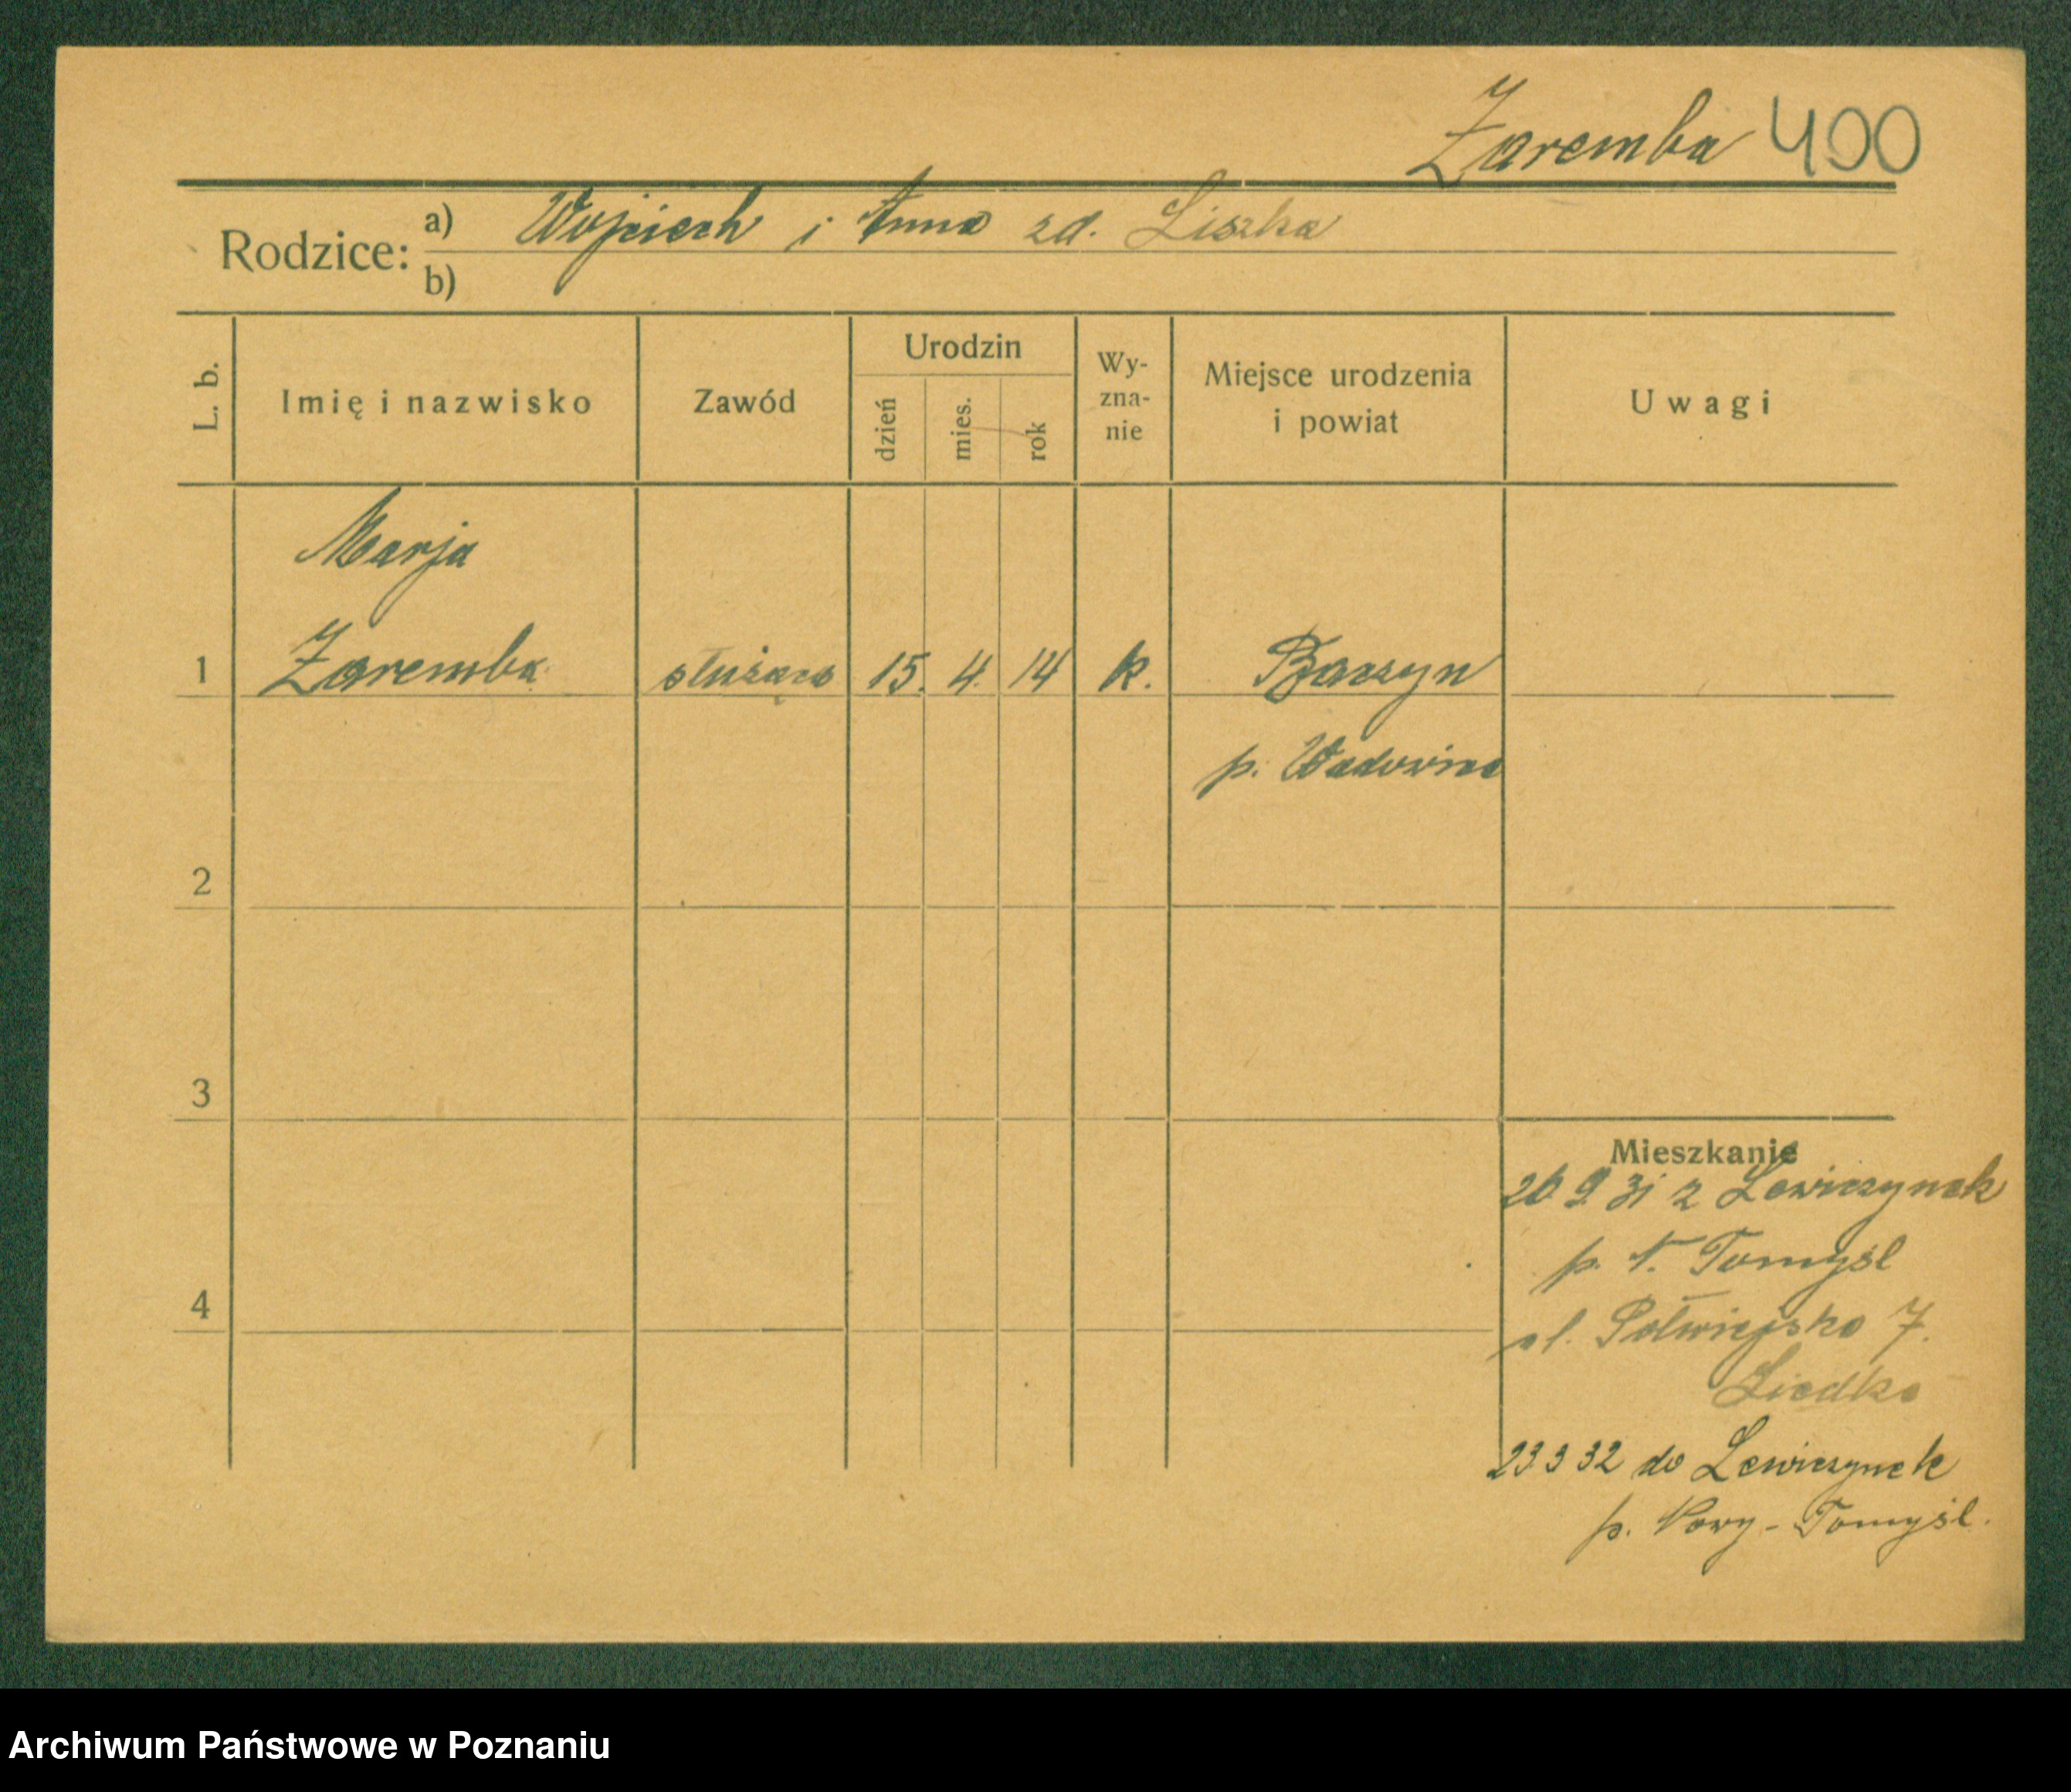 Zaremba 400
Rodzice: a) Wojciech i Anna zd. Liszka
b)
L. b.
Imię i nazwisko
Zawód
Urodzin
dzień
mies.
rok
Wy-
zna-
nie
Miejsce urodzenia
i powiat
Uwagi
Marja
1 Zaremba służąca 15. 4. 14 k. Baczyn
p. Wadowice
2
3
4
Mieszkanie
26 9 31 z Lewiczynek
p. N. Tomyśl
ul. Półwiejska 7.
23 3 32 do Lewiczynek
p. Nowy-Tomyśl.
Archiwum Państwowe w Poznaniu